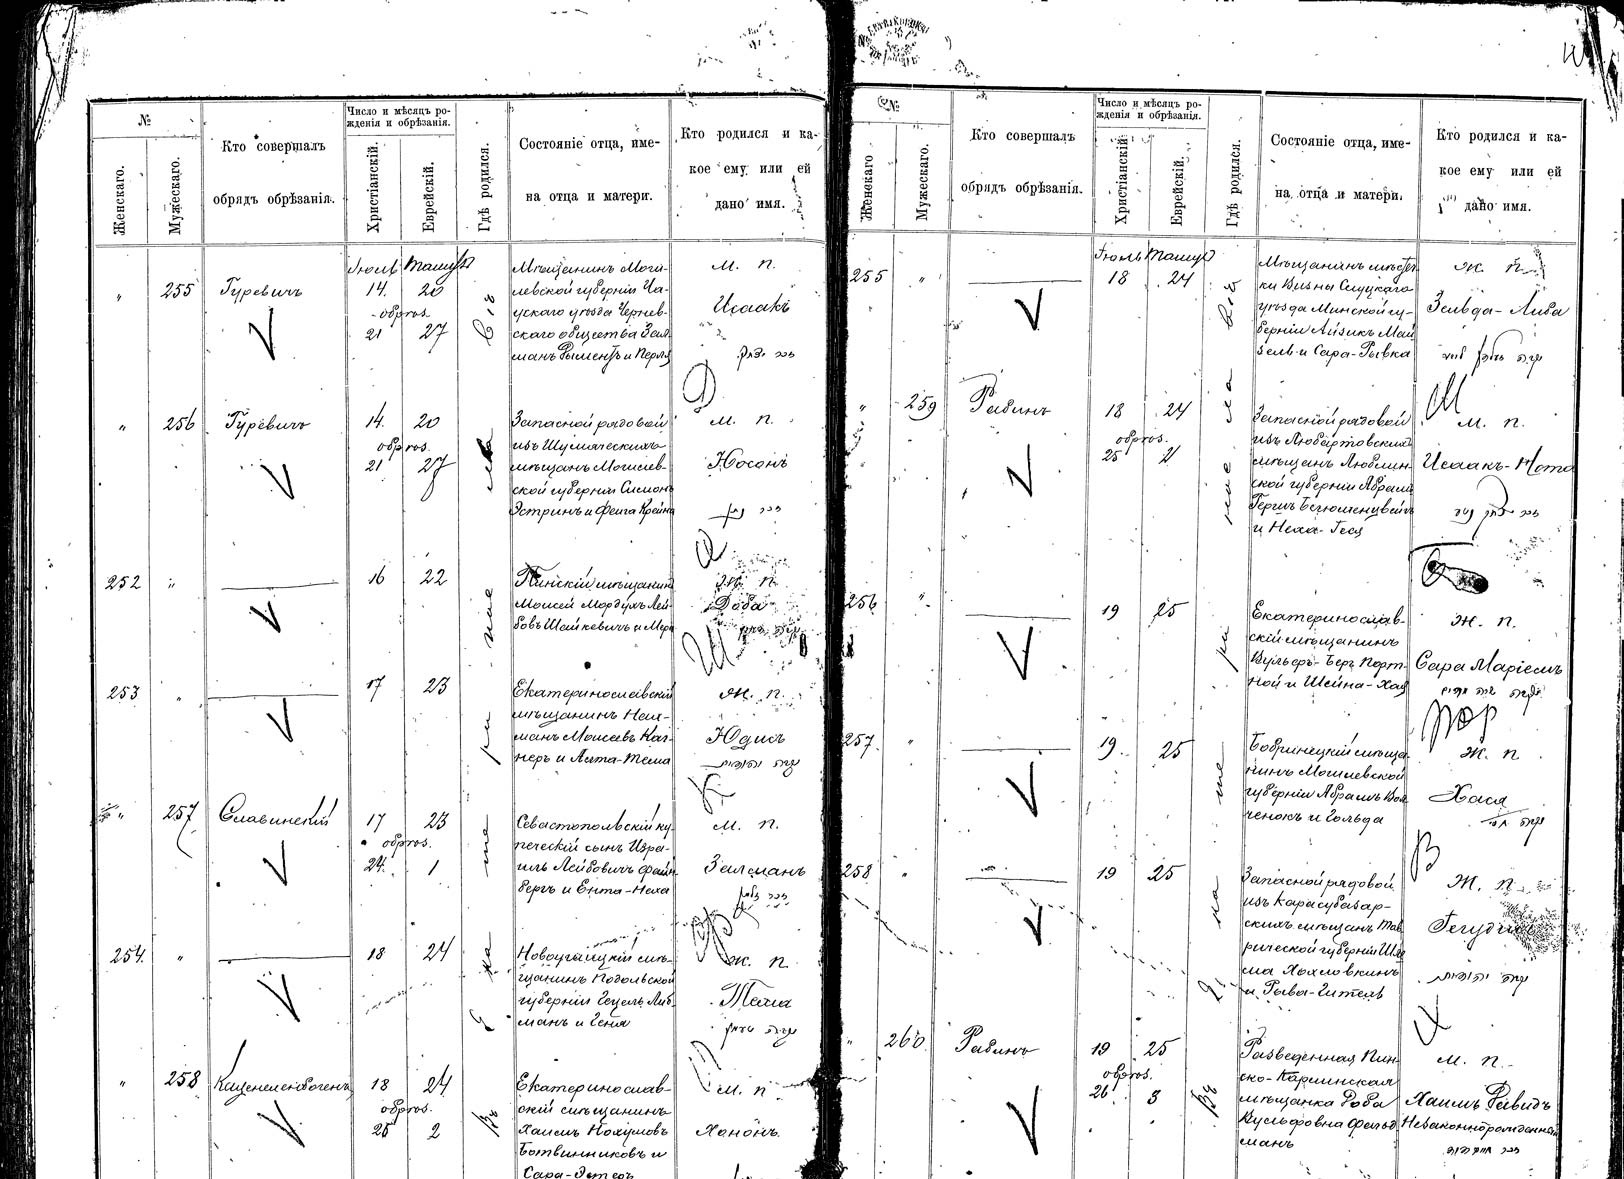 №
Женскаго.
Мужескаго.
Кто совершалъ
обрядъ обрѣзанія.
Число и мѣсяцъ ро-
жденія и обрѣзанія.
Христіанскій.
Еврейскій.
Гдѣ родился.
Состояніе отца, име-
на отца и матери.
Кто родился и ка-
кое ему или ей
дано имя.
Іюль Тамузъ
" 255 Гуревичъ 14. 20
обрѣз.
21 27
Мѣщанинъ Моги-
левской губерніи Ча-
усскаго уѣзда Чернев-
скаго общества Зал-
манъ и Перля
м. п.
Исаакъ
" 256 Гуревичъ 14. 20
обрѣз.
21 27
Запасной рядовой
изъ Шумяческихъ
мѣщанъ Могилев-
ской губерніи Симонъ
Эстринъ и Фейга Крейна
м. п.
Носонъ
זכר נתן
252 " 16 22
Пинскій мѣщанинъ
Моисей Мордухъ Лей-
бовъ Шайкевичъ и Мера
ж. п.
Доба
253 " 17 23
Екатеринославскій
мѣщанинъ Нех-
манъ Моисеевъ Каг-
неръ и Алта-Тема
ж. п.
Юдись
נקבה יהודית
" 257 Славинскій 17 23
обрѣз.
24. 1
Севастопольскій ку-
печескій сынъ Изра-
иль Лейбовичъ Файн-
бергъ и Ента-Неха
м. п.
Залманъ
זכר זלמן
254. " 18 24
Новоушицкій мѣ-
щанинъ Подольской
губерніи Гецель Либ-
манъ и Геня
ж. п.
Тема
" 258 Каценеленбогенъ 18 24
обрѣз.
25 2
Екатеринослав-
скій мѣщанинъ
Хаимъ Нохумовъ
Ботвинниковъ и
Сара-Эстеръ
м. п
Ханонъ.
Въ Екатеринославѣ
№
Женскаго
Мужескаго.
Кто совершалъ
обрядъ обрѣзанія.
Число и мѣсяцъ ро-
жденія и обрѣзанія.
Христіанскій
Еврейскій.
Гдѣ родился.
Состояніе отца, име-
на отца и матери.
Кто родился и ка-
кое ему или ей
дано имя.
Іюль Тамузъ
255 " 18 24
Мѣщанинъ мѣстеч-
ки Визны Слуцкаго
уѣзда Минской гу-
берніи Айзикъ Май-
зель и Сара-Рывка
ж. п.
Зельда-Либа
" 259 Рабинъ 18 24
обрѣз.
25 2
Запасной рядовой
изъ Любартовскихъ
мѣщанъ Люблин-
ской губерніи Абрамъ
Гершъ
и Неха-Геся
м. п.
Исаакъ-Нота
זכר יצחק נטע
256 " 19 25
Екатеринослав-
скій мѣщанинъ
Вульфъ-Беръ Порт-
ной и Шейна-Хая
ж. п.
Сара Маріемъ
נקבה שרה מרים
257. " 19. 25
Бобринецкій мѣща-
нинъ Могилевской
губерніи Абрамъ
и Гольда
ж. п
Хася
258 " 19 25
Запасной рядовой
изъ Карасубазар-
скихъ мѣщанъ Тав-
рической губерніи
Хохловкинъ
и Рыва-Гитель
ж. п
נקבה יהודית
" 260 Рабинъ 19 25
обрѣз.
26. 3
Разведенная Пин-
ско-Карлинская
мѣщанка Доба
Вульфовна Фельд-
манъ
м. п.
Хаимъ Давидъ
Незаконнорожденный
זכר חיים דוד
Въ Екатеринославѣ